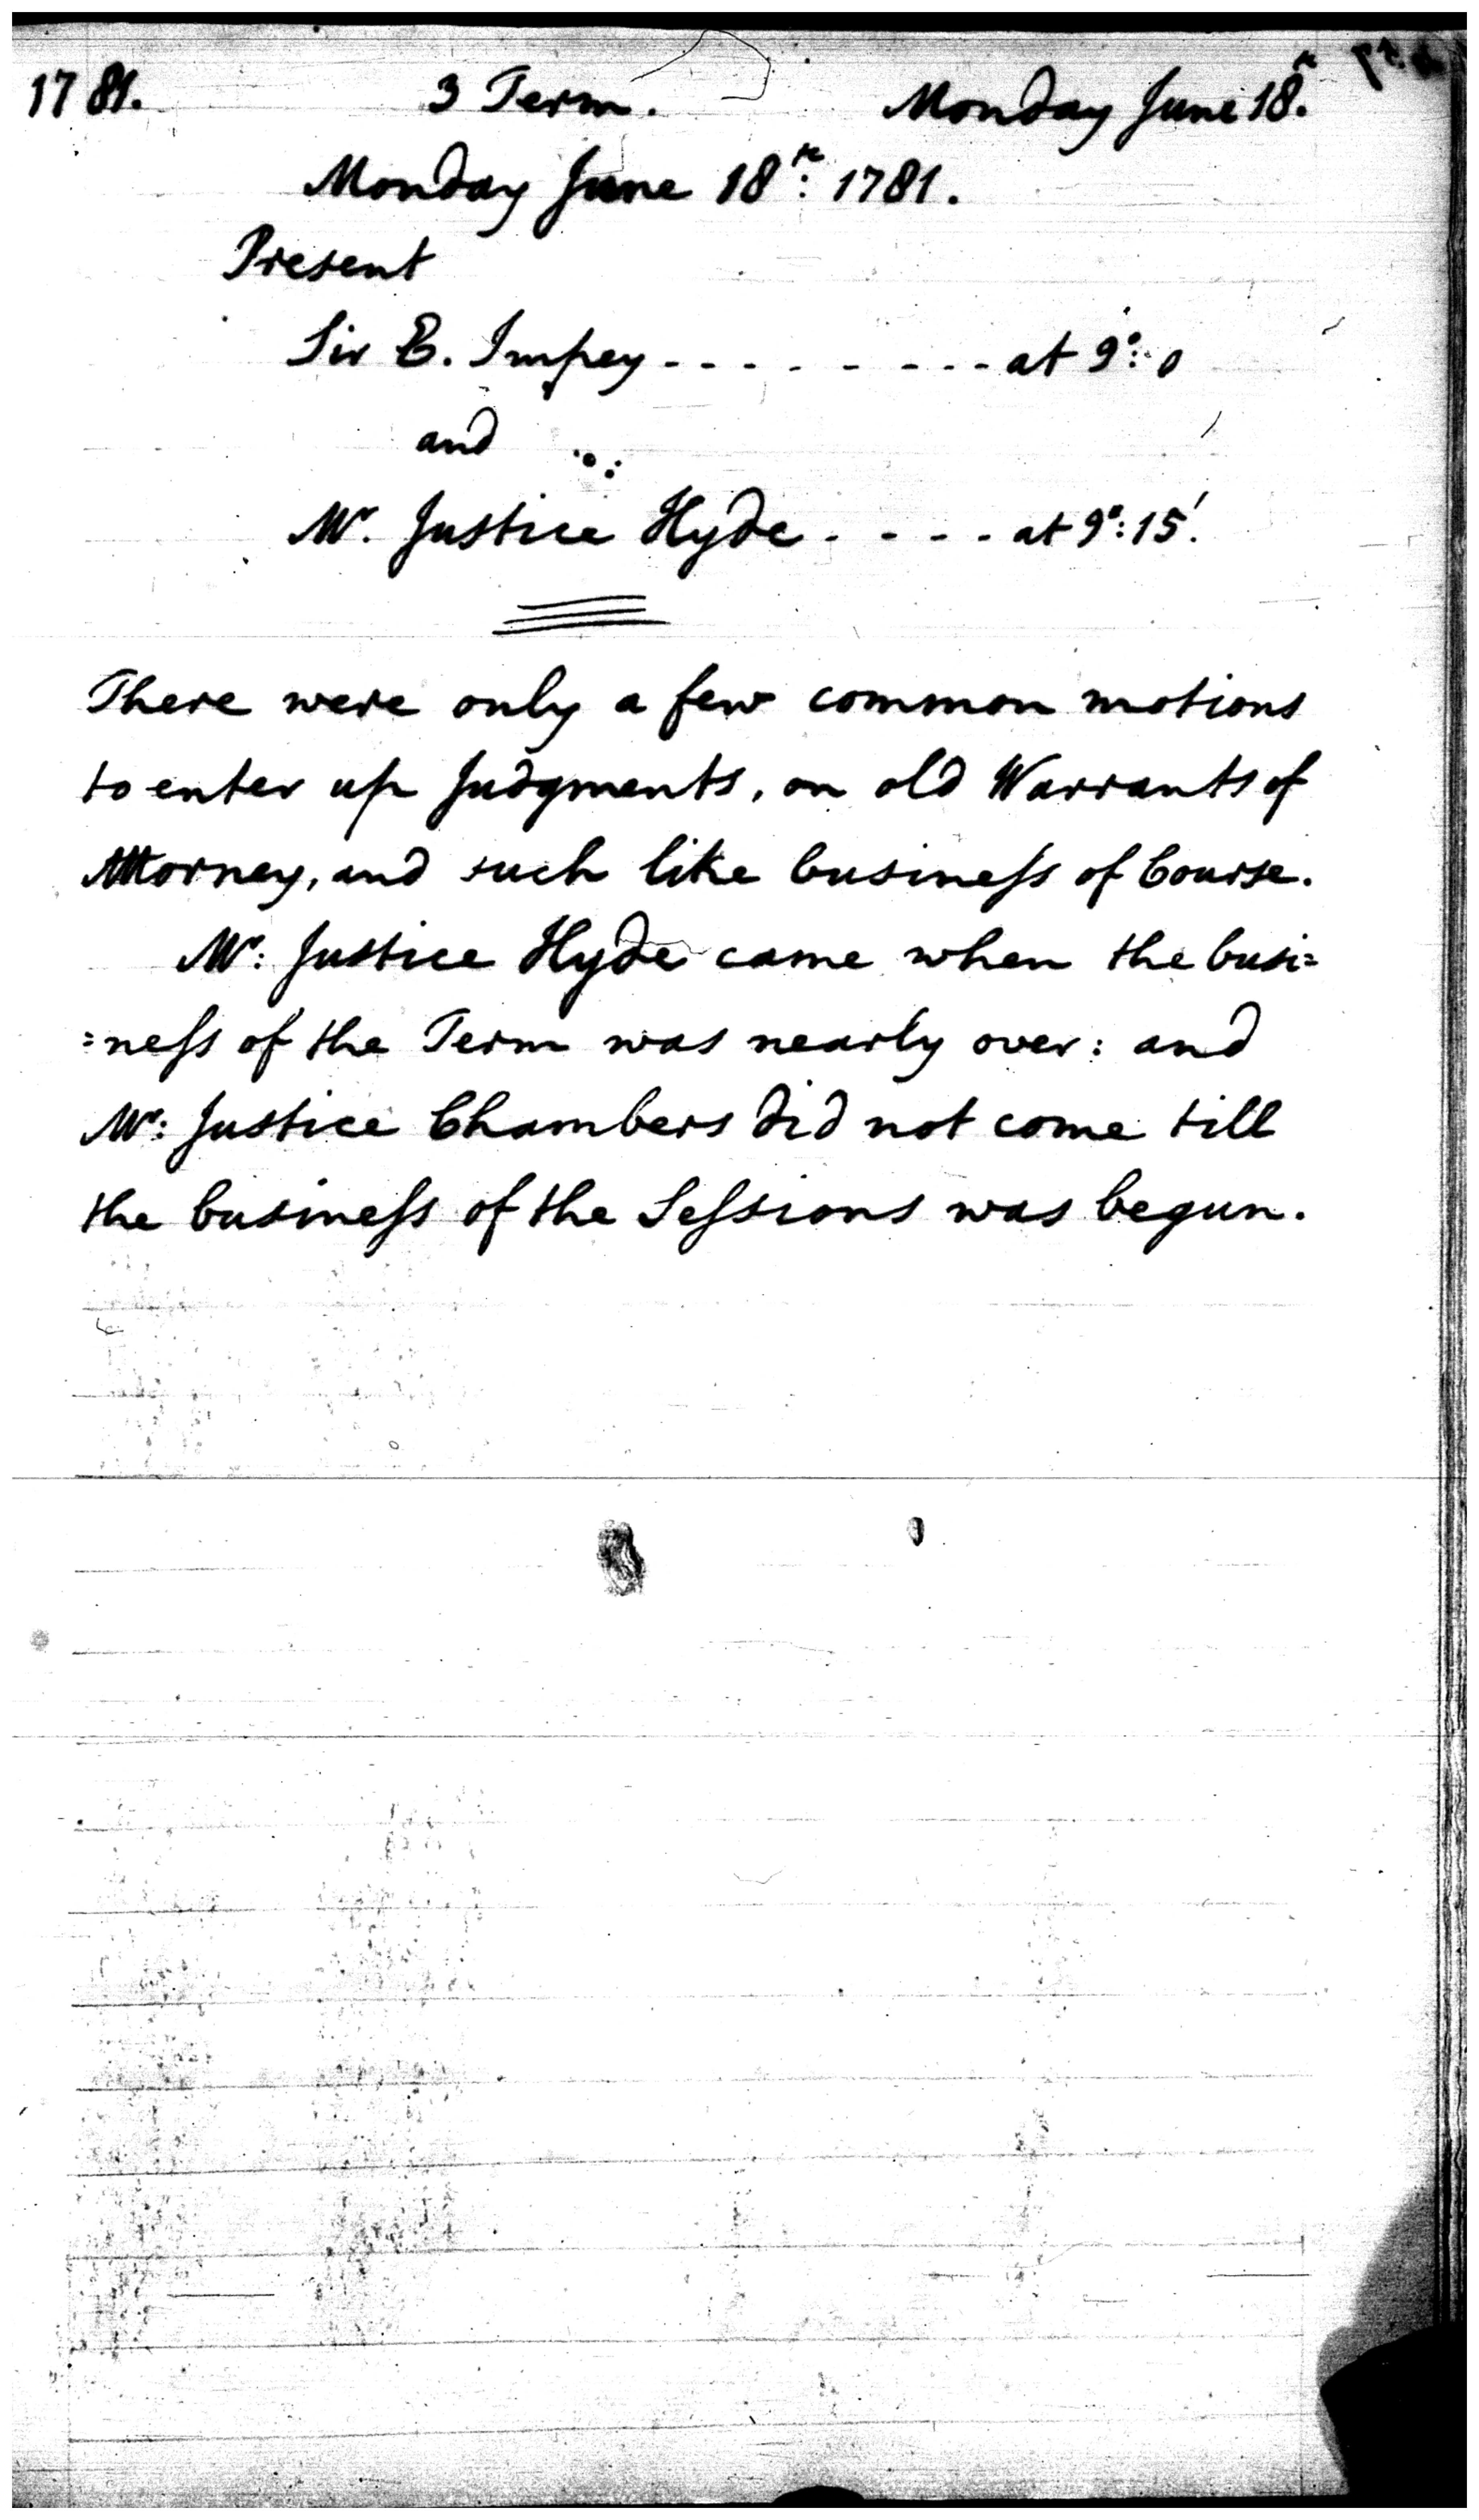 1781. 3 Term. Monday June 18th.
Monday June 18th: 1781.
Present
Sir E. Impey - - - - - - - - - at 9°: 0
and
Mr. Justice Hyde - - - - at 9°: 15'.
There were only a few common motions
to enter up Judgments, on old Warrants of
Attorney, and such like busineſs of Course.
Mr: Justice Hyde came when the busi=
=neſs of the Term was nearly over: and
Mr: Justice Chambers did not come till
the busineſs of the Seſsions was begun.